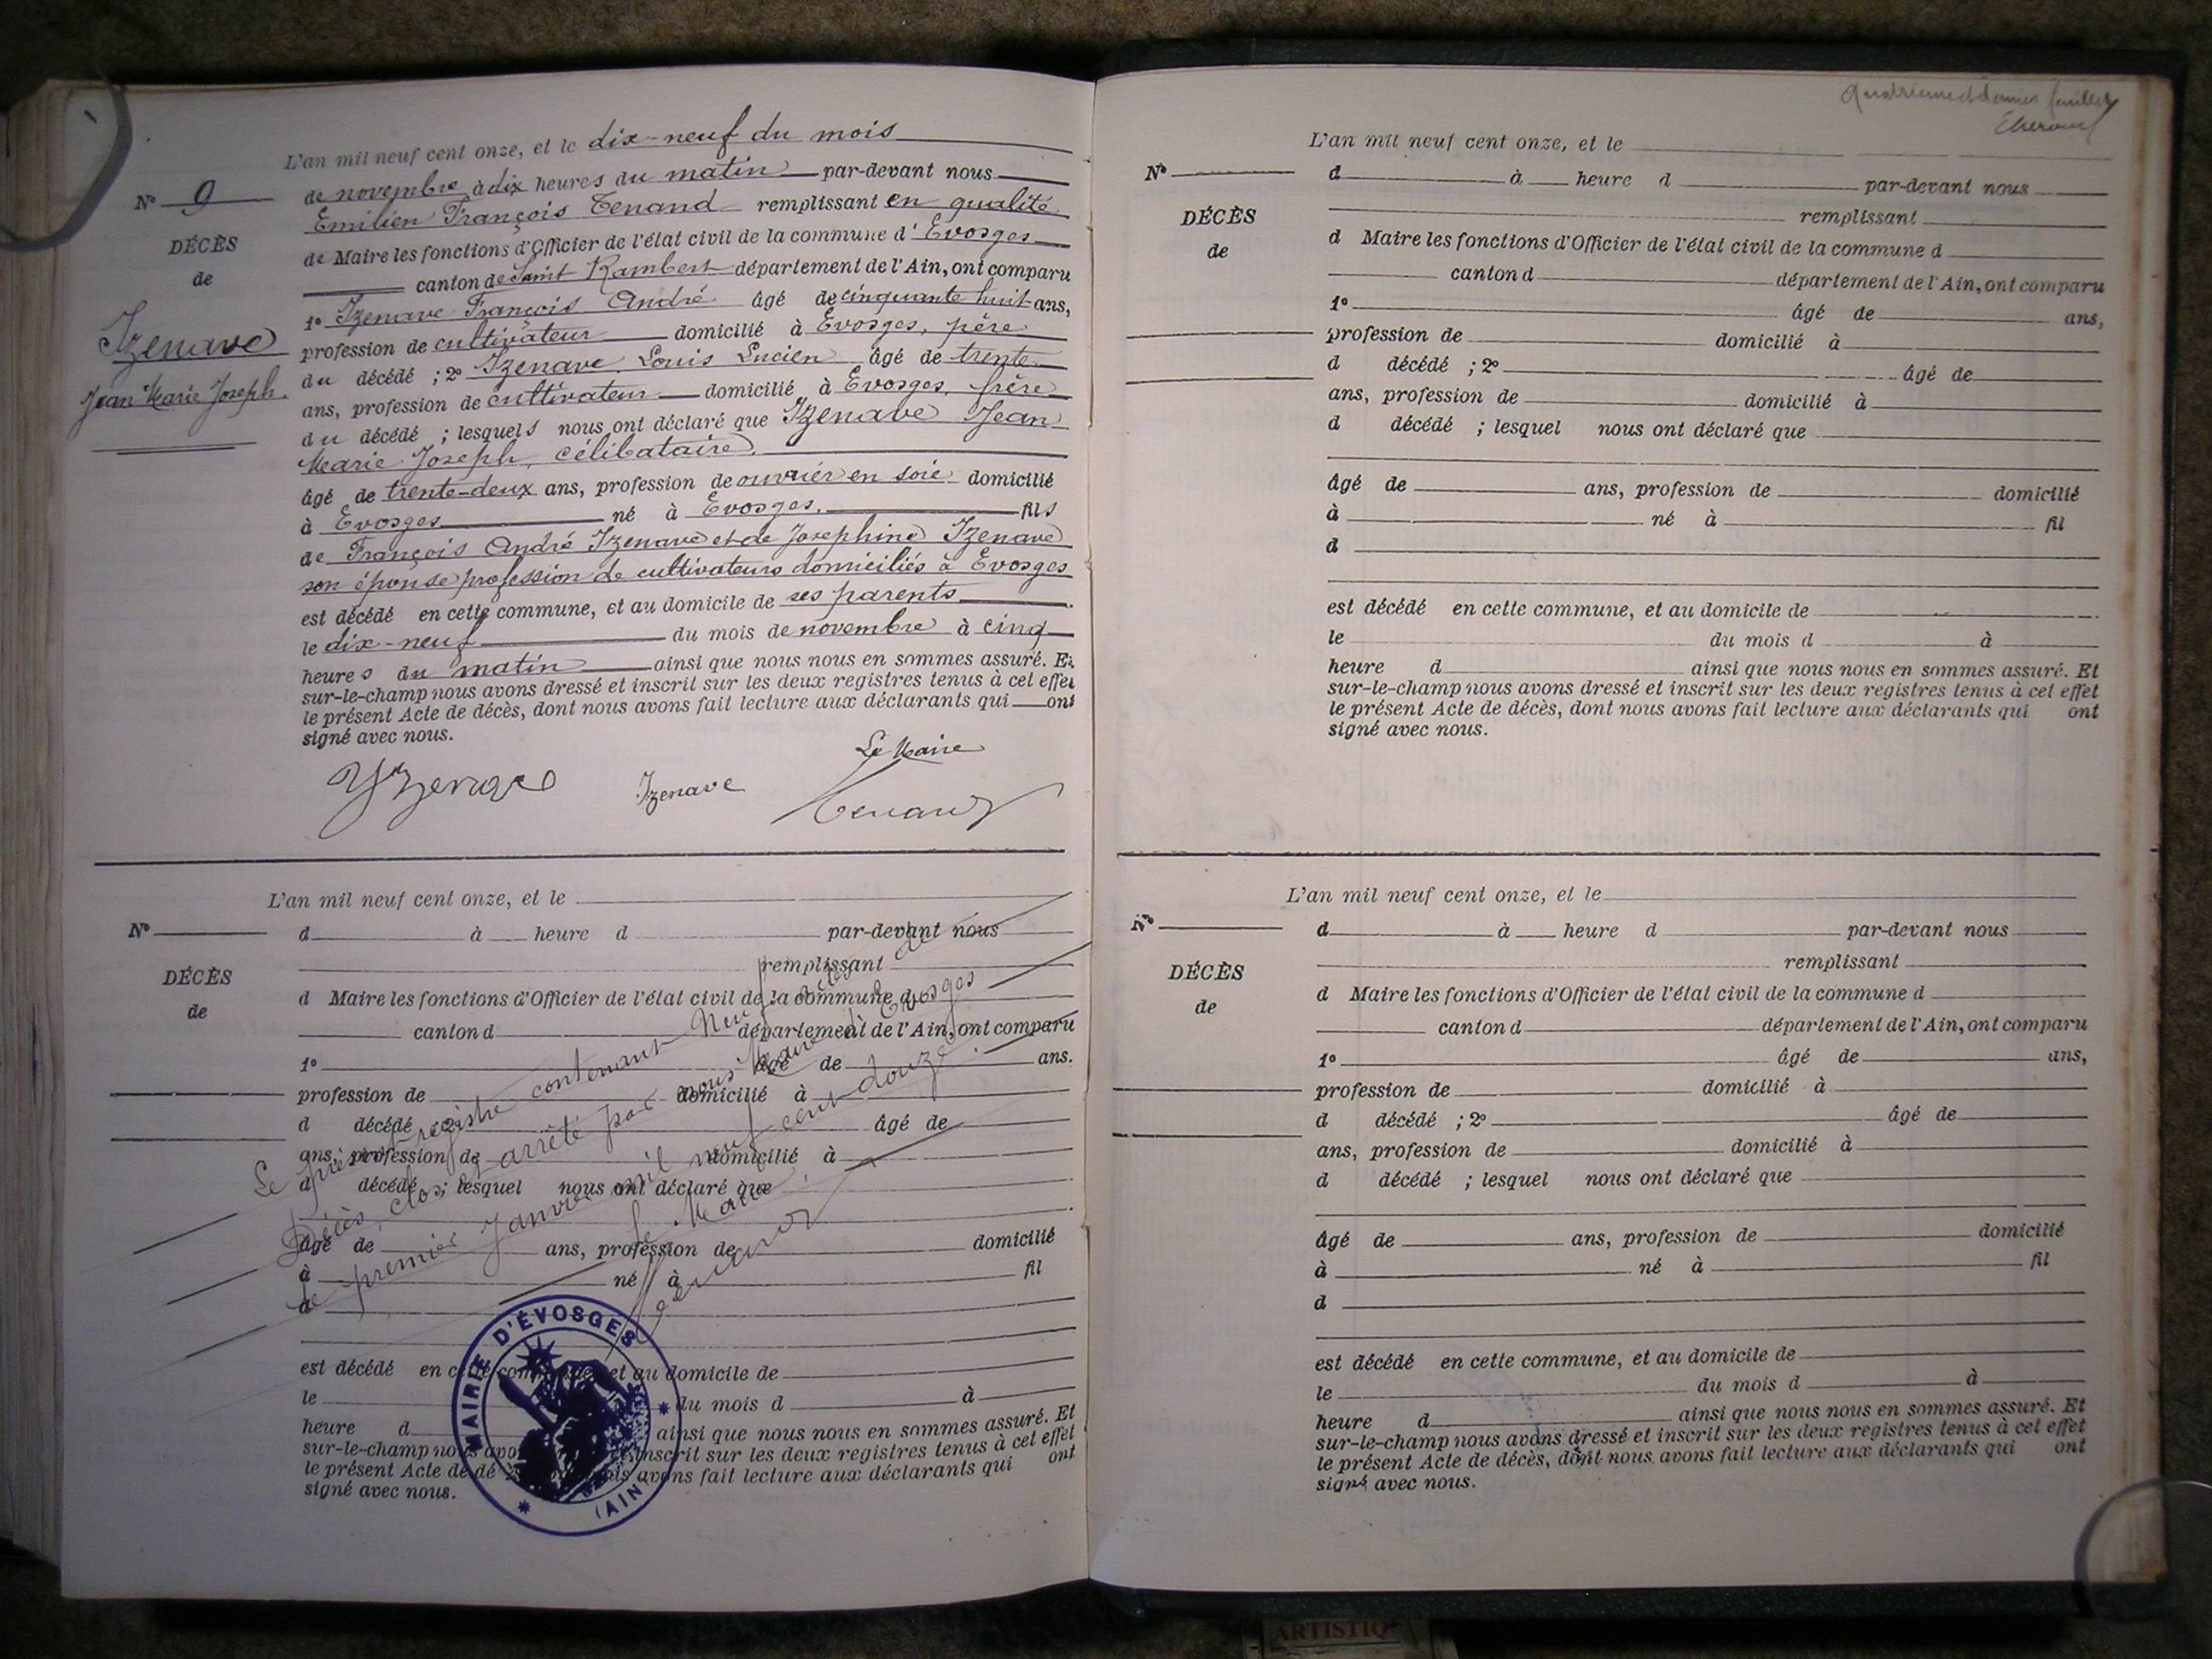 L'an mil neuf cent onze, et le dix-neuf du mois
de novembre à dix heures du matin par-devant nous
Emilien François Tenand remplissant en qualité
de Maire les fonctions d'Officier de l'état civil de la commune d'Evosges
canton de Saint Rambert département de l'Ain, ont comparu
1º Izenave François André âgé de cinquante huit ans,
profession de cultivateur domicilié à Evosges, père
du décédé ; 2º Izenave Louis Lucien âgé de trente
ans, profession de cultivateur domicilié à Evosges, frère
du décédé ; lesquels nous ont déclaré que Izenave Jean
Marie Joseph, célibataire.
âgé de trente-deux ans, profession de ouvrier en soie domicilié
à Evosges né à Evosges. fils
de François André Izenave et de Josephine Izenave
son épouse profession de cultivateurs domiciliés à Evosges
est décédé en cette commune, et au domicile de ses parents
le dix-neuf du mois de novembre à cinq
heures du matin ainsi que nous nous en sommes assuré. Et
sur-le-champ nous avons dressé et inscrit sur les deux registres tenus à cet effet
le présent Acte de décès, dont nous avons fait lecture aux déclarants qui ont
signé avec nous.
Nº 9
DÉCÈS
de
Izenave
Jean Marie Joseph.
Le Maire
Yzenave Izenave Tenand
L'an mil neuf cent onze, et le
Nº d à heure d par-devant nous
remplissant
DÉCÈS
de
d Maire les fonctions d'Officier de l'état civil de la commune d
canton d département de l'Ain, ont comparu
1º âgé de ans.
profession de domicilié à
d décédé ; 2º âgé de
ans, profession de domicilié à
d décédé ; lesquel nous ont déclaré que
âgé de ans, profession de domicilié
à né à fil
d
est décédé en cette commune, et au domicile de
le du mois d à
heure d ainsi que nous nous en sommes assuré. Et
sur-le-champ nous avons dressé et inscrit sur les deux registres tenus à cet effet
le présent Acte de décès, dont nous avons fait lecture aux déclarants qui ont
signé avec nous.
Le présent registre contenant Neuf actes de
Décès, clos et arrêté par nous Maire d'Evosges
le premier Janvier mil neuf cent douze
Le Maire
Tenand
MAIRIE D'ÉVOSGES
(AIN)
Quatrième et dernier feuillet
L'an mil neuf cent onze, et le
Nº d à heure d par-devant nous
remplissant
DÉCÈS
de
d Maire les fonctions d'Officier de l'état civil de la commune d
canton d département de l'Ain, ont comparu
1º âgé de ans,
profession de domicilié à
d décédé ; 2º âgé de
ans, profession de domicilié à
d décédé ; lesquel nous ont déclaré que
âgé de ans, profession de domicilié
à né à fil
d
est décédé en cette commune, et au domicile de
le du mois d à
heure d ainsi que nous nous en sommes assuré. Et
sur-le-champ nous avons dressé et inscrit sur les deux registres tenus à cet effet
le présent Acte de décès, dont nous avons fait lecture aux déclarants qui ont
signé avec nous.
L'an mil neuf cent onze, et le
Nº d à heure d par-devant nous
remplissant
DÉCÈS
de
d Maire les fonctions d'Officier de l'état civil de la commune d
canton d département de l'Ain, ont comparu
1º âgé de ans,
profession de domicilié à
d décédé ; 2º âgé de
ans, profession de domicilié à
d décédé ; lesquel nous ont déclaré que
âgé de ans, profession de domicilié
à né à fil
d
est décédé en cette commune, et au domicile de
le du mois d à
heure d ainsi que nous nous en sommes assuré. Et
sur-le-champ nous avons dressé et inscrit sur les deux registres tenus à cet effet
le présent Acte de décès, dont nous avons fait lecture aux déclarants qui ont
signé avec nous.
ARTISTIQ